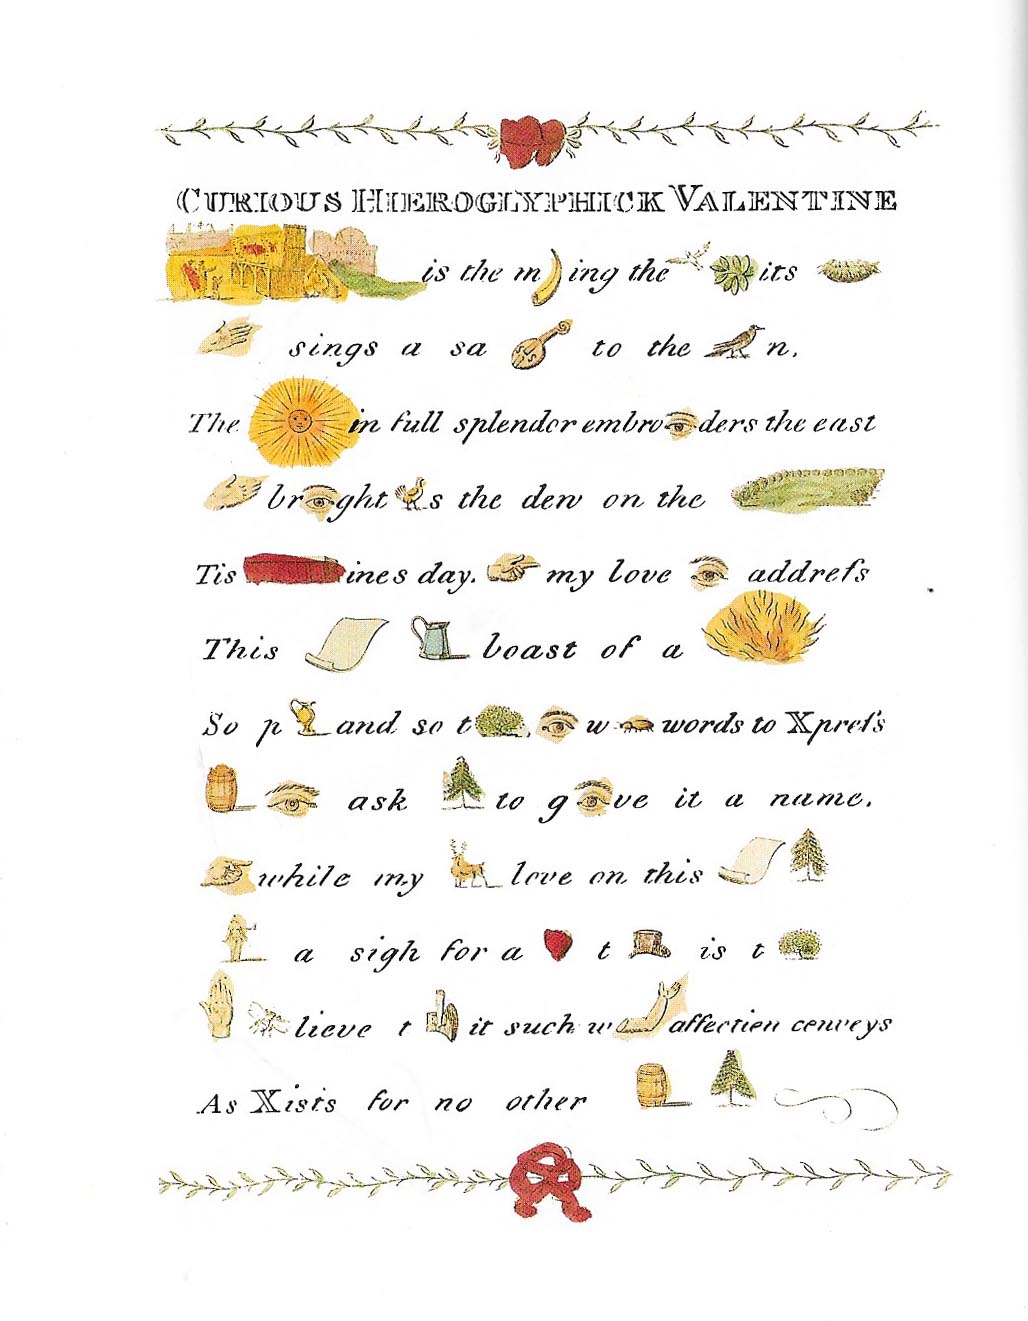 CURIOUS HIEROGLYPHICK VALENTINE
is the m ing the its
sings a sa to the n.
The in full splendor embro ders the east
br ght s the dew on the
Tis ines day. my love addreſs
This boast of a
So p and so t , w words to Xpreſs
ask to g ve it a name.
while my love on this
a sigh for a t is t
lieve t it such w affection conveys
As Xists for no other